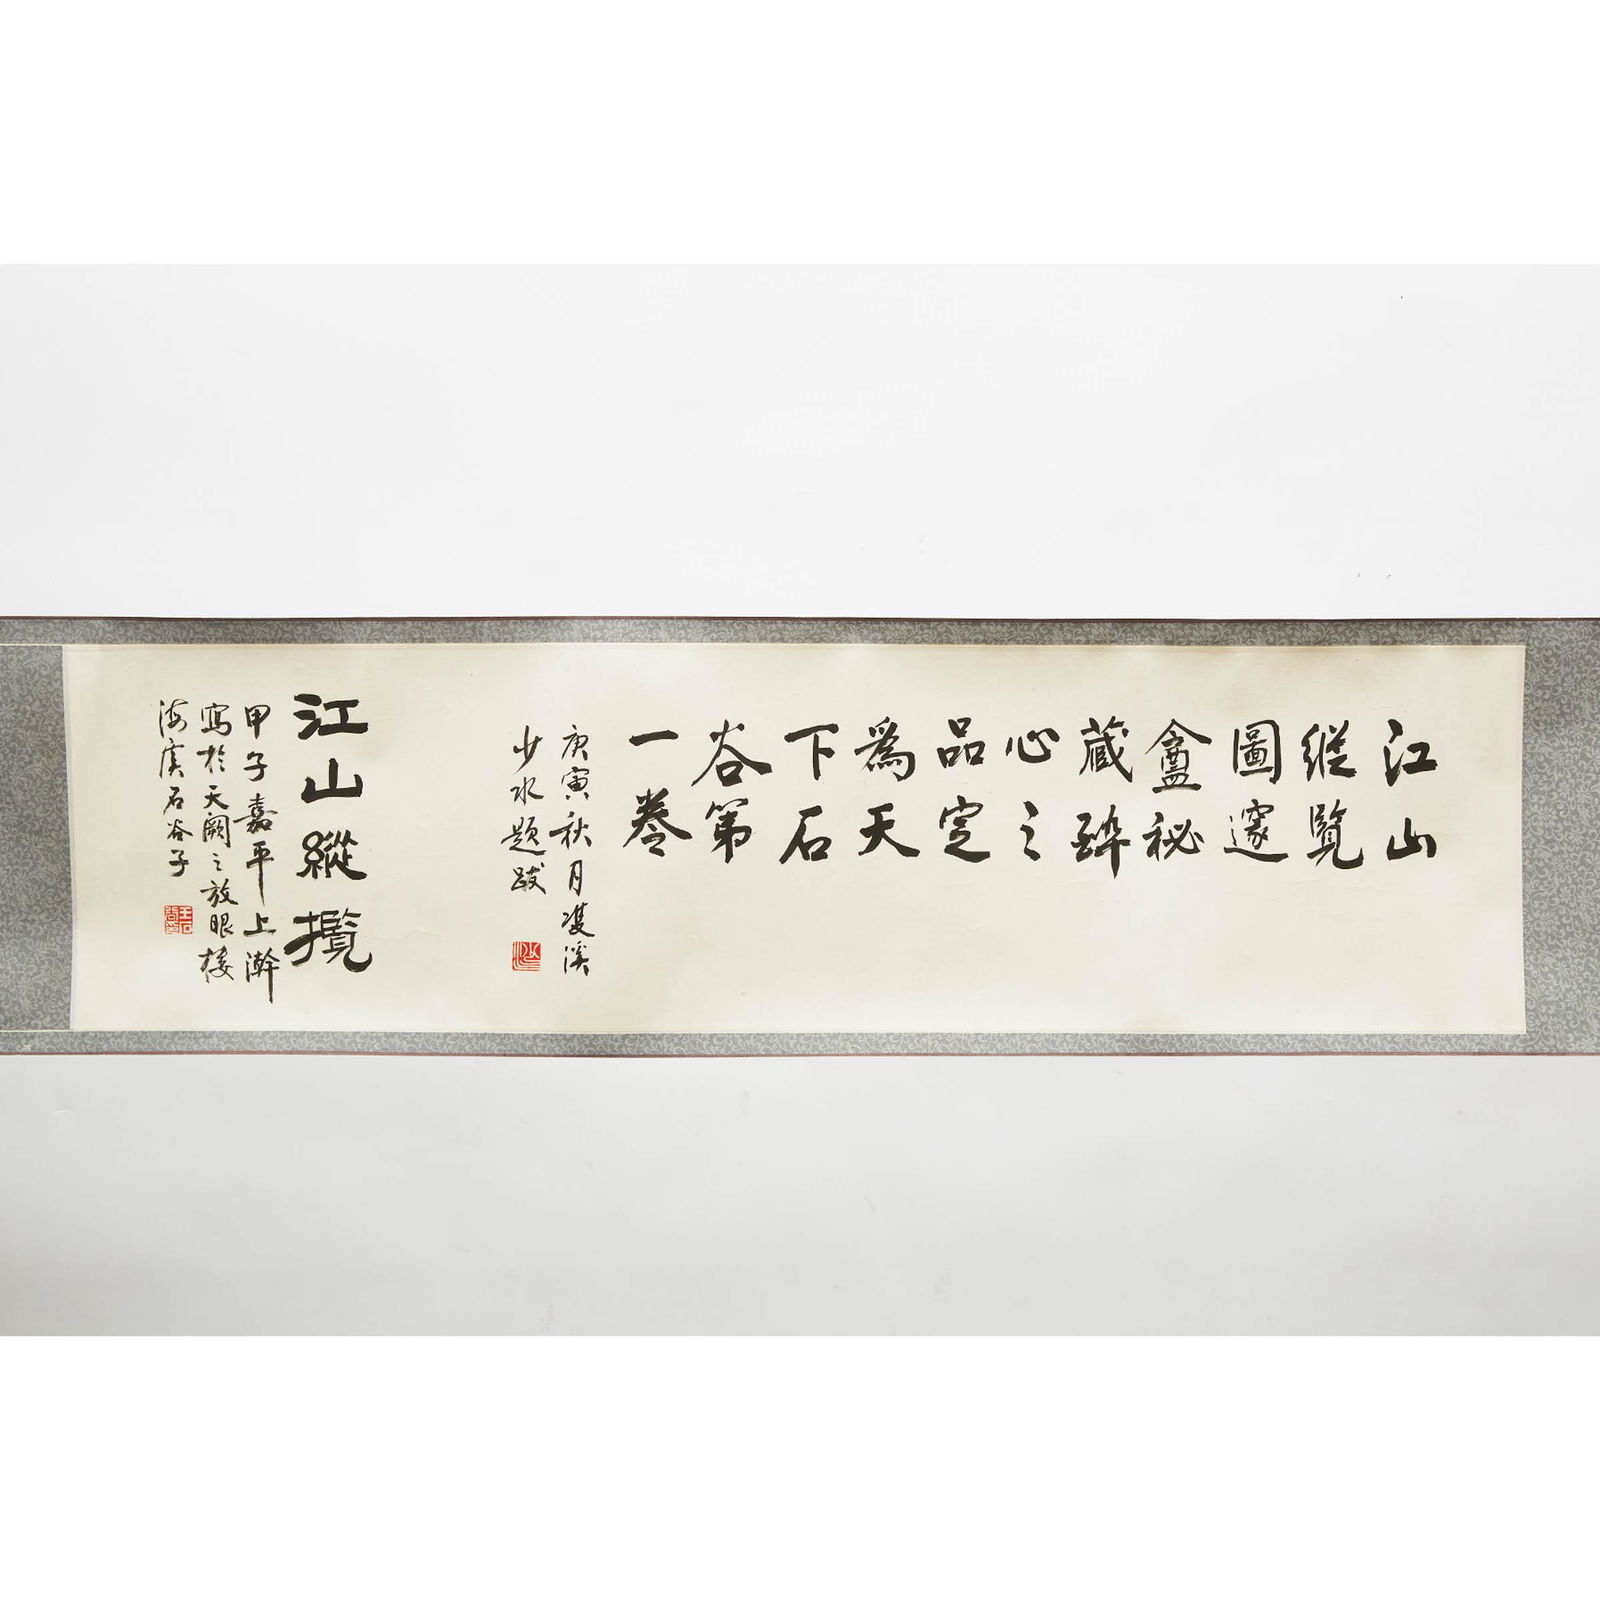 江山
縱覽
圖邃
盦秘
藏醉
心之
品定
為天
下石
谷第
一卷
庚寅秋月雙溪
少水題跋
江山縱攬
甲子嘉平上澣
寫於天闕之放眼樓
海虞石谷子